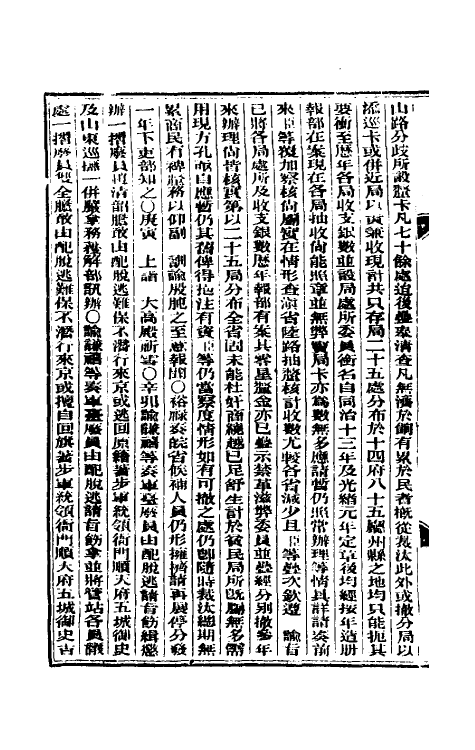 山路分歧所設釐卡凡七十餘處迨後疊奉清查凡無濟於餉有累於民者概從裁汰此外或撤分局以
添巡卡或併近局以資兼收現計共只存局二十五處分布於十四府八十五廳州縣之地均只能扼其
要衝至歷年各局收支銀數並設局處所委員銜名自同治十三年及光緒元年定章後均經按年造冊
報部在案現在各局抽收尚能照章並無弊竇局卡亦為數無多應請暫仍照常辦理等情具詳請奏前
來臣等覆加察核尚屬實在情形查滇省陸路抽釐核計收數尤較各省減少且臣等疊次欽遵 諭旨
已將各局處所及收支銀數歷年報部有案其零星釐金亦已疊示禁革滋弊委員並疊經分別撤參年
來辦理尚皆核實第以二十五局分布全省固未能杜奸商繞越已足舒生計於貧民局所既屬無多需
用現方孔亟自應暫仍其舊俾得挹注有資臣等仍當察度情形如有可撤之處仍卽隨時裁汰總期無
累商民有裨餉務以仰副 訓諭殷肫之至意報聞〇裕祿奏皖省候補人員仍形擁擠請再展停分發
一年下吏部知之〇庚寅 上詣 大高殿祈雪〇辛卯諭謙禧等奏軍臺廢員由配脫逃請旨飭緝懲
辦一摺廢員 清韶膽敢由配脫逃難保不潛行來京或逃回原籍著步軍統領衙門順天府五城御史
及山東巡撫一併嚴拿務獲解部訊辦〇諭謙禧等奏軍臺廢員由配脫逃請旨飭拿並將管站各員議
處一摺廢員 全膽敢由配脫逃難保不潛行來京或擅自回旗著步軍統領衙門順天府五城御史吉